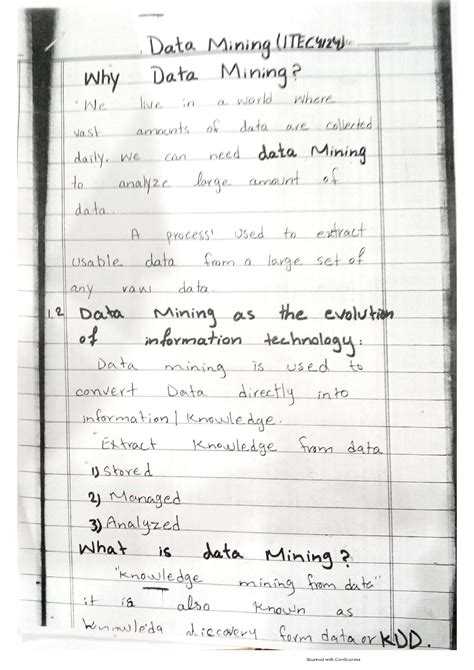 Data Mining (ITEC4124)
Why Data Mining?
"We live in a world where
vast amounts of data are collected
daily. We can need data Mining
to analyze large amount of
data.
A process' used to extract
usable data from a large set of
any raw data.
1.2 Data Mining as the evolution
of information technology:
Data mining is used to
convert Data directly into
information / Knowledge.
"Extract Knowledge from data
1) Stored
2) Managed
3) Analyzed
What is data Mining?
"Knowledge mining from data"
it is also Known as
discovery form data or KDD.
Scanned with CamScanner